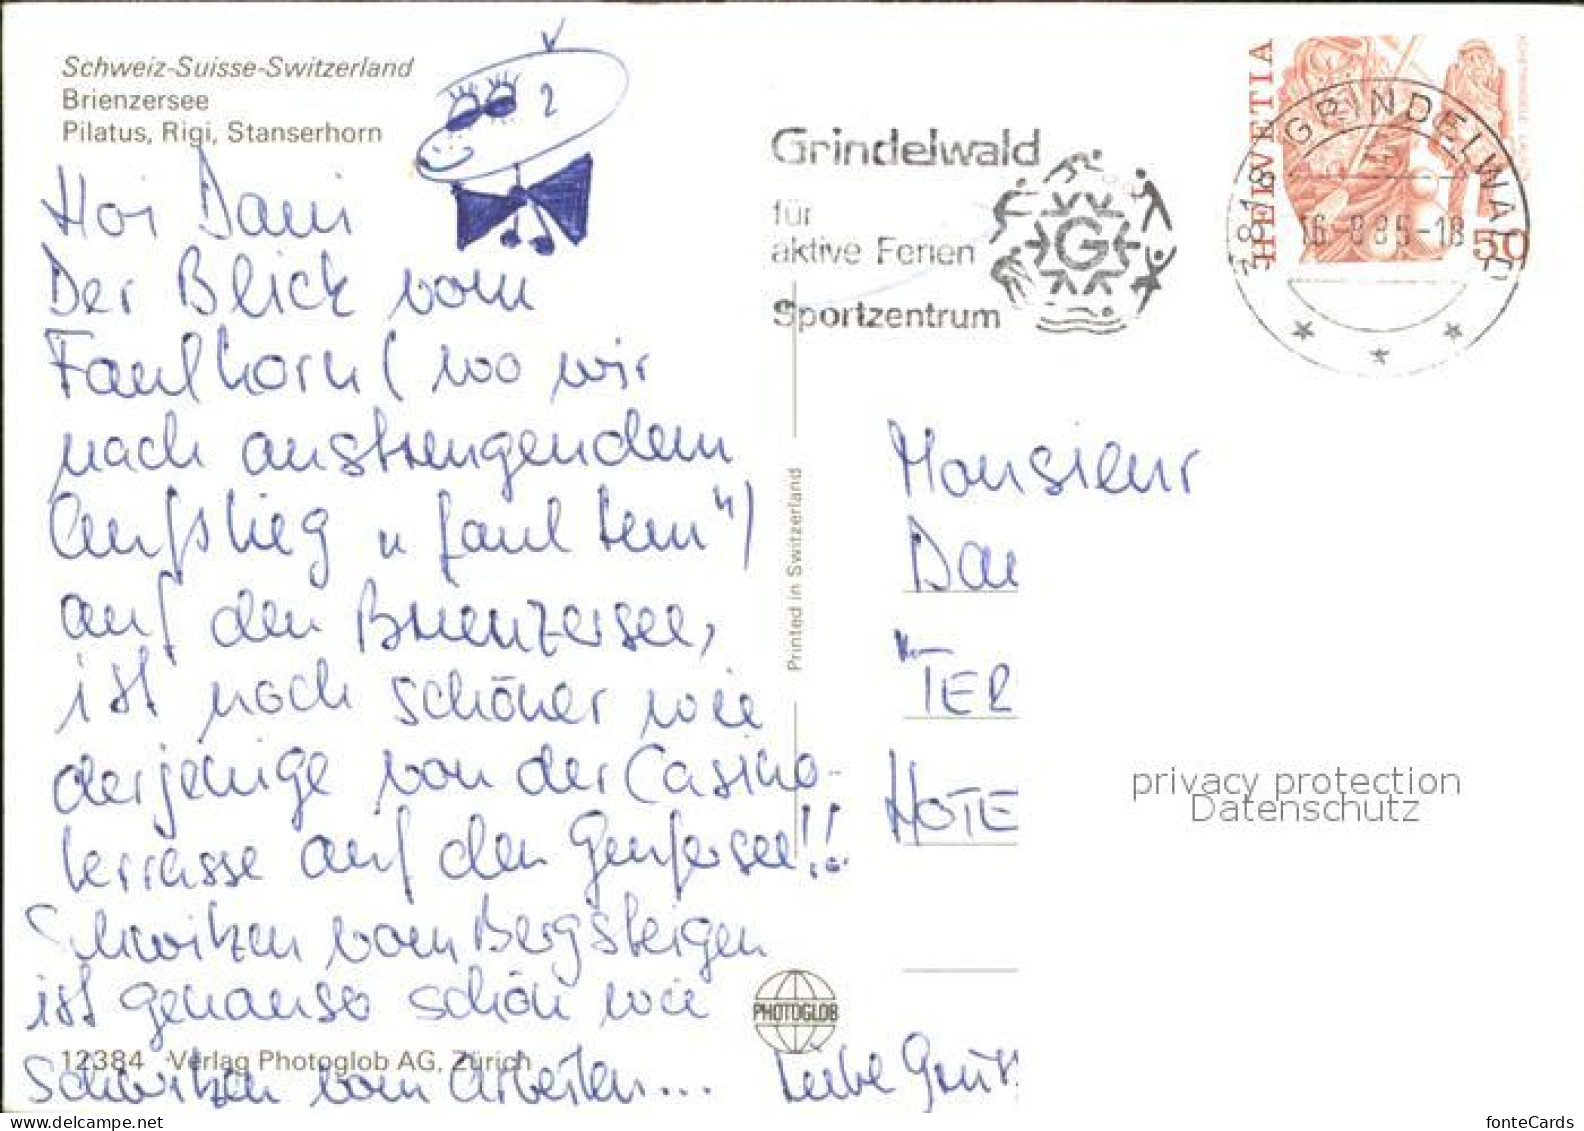 Schweiz-Suisse-Switzerland
Brienzersee
Pilatus, Rigi, Stanserhorn
2
Hoi Dani
Der Blick vom
Faulhorn (wo wir
nach anstrengendem
Aufstieg "faul
auf den Brienzersee,
ist noch schöner wie
derjenige von der Casino-
terrasse auf den Genfersee!!
Schwitzen vom Bergsteigen
ist genauso schön wie
Schwitzen vom Arbeiten...
Liebe Grüss
12384 Verlag Photoglob AG, Zürich
PHOTOGLOB
Printed in Switzerland
Grindelwald
für
aktive Ferien
Sportzentrum
G
HELVETIA
50
3818 GRINDELWALD
16.-8.85-18
Monsieur
Dan
TER
HOTE
privacy protection
Datenschutz
fonteCards